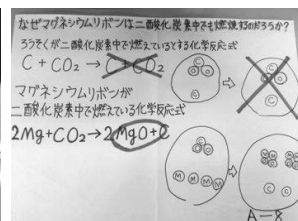 なぜマグネシウムリボンは二酸化炭素中でも燃焼するのだろうか?
ろうそくが二酸化炭素中で燃えているとする化学反応式
C + CO₂ → C + CO₂
マグネシウムリボンが
二酸化炭素中で燃えている化学反応式
2Mg+CO₂→2MgO+C
C
C
M M M M
C C
A-8